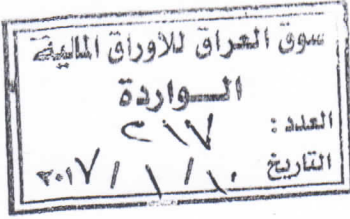 سوق العراق للأوراق المالية
الـــواردة
العدد : ٢١٧
التاريخ ١٠ / ١ / ٢٠١٧